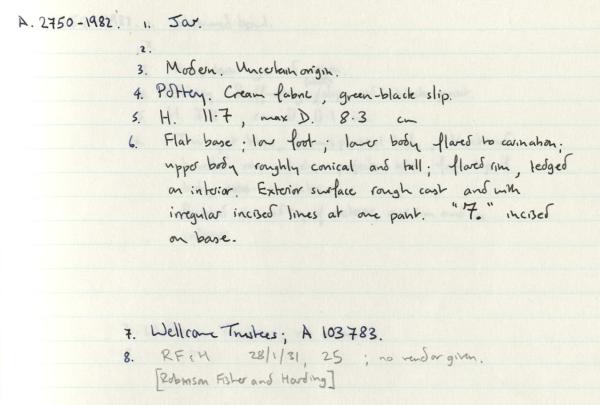 A. 2750-1982. 1. Jar.
2.
3. Modern. Uncertain origin.
4. Pottery. Cream fabric, green-black slip.
5. H. 11.7, max D. 8.3 cm
6. Flat base; low foot; lower body flared to carination;
upper body roughly conical and tall; flared rim, ledged
on interior. Exterior surface rough cast and with
irregular incised lines at one point. "7." incised
on base.
7. Wellcome Trustees; A 103783.
8. RF&H 28/1/31, 25; no vendor given.
[Robinson Fisher and Harding]